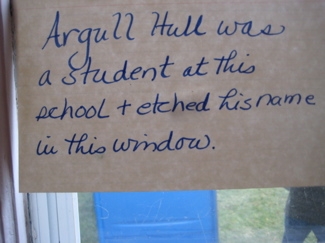 Argull Hull was
a student at this
school + etched his name
in this window.